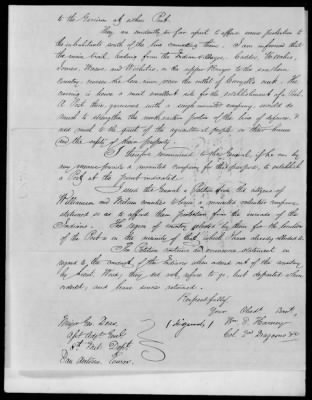 to the Garrison at either Post.
They are evidently too far apart to afford sure protection to
the inhabitants south of the line connecting them. I am informed that
the main trail, leading from the Indian villages, Caddos, Wacoes,
Ionies, Wacos and Wichitas, on the upper Brazos to the southern
country crosses the Leon river near the outlet of Coryell's creek. The
crossing is however a most excellent site for the establishment of a Post.
A Post there garrisoned with a single mounted company would do
much to strengthen the north eastern portion of the line of defence, &
add much to the quiet of the agricultural people in their homes
and the safety of their property.
I therefore recommend to the General, if he can by
any means provide a mounted company for this purpose, to establish
a Post at the point indicated.
I send the General a Petition from the citizens of
Williamson and Milam counties to have a mounted volunteer company
stationed so as to afford them protection from the inroads of the
Indians. The region of country selected by them for the location
of the Post is in the vicinity of that, which I have already alluded to.
The Petition contains an erroneous statement in
regard to the conduct of the Indians when ordered out of the country
by Lieut. Wood, they did not refuse to go, but departed when
ordered, and have since returned.
Respectfully
Your Obedt. Servt.
(signed) Wm. S. Harney
Col. 2nd Dragoons &c
Major Geo. Deas
Asst. Adjt. Genl.
8th Mil: Dept.
San Antonio, Texas.